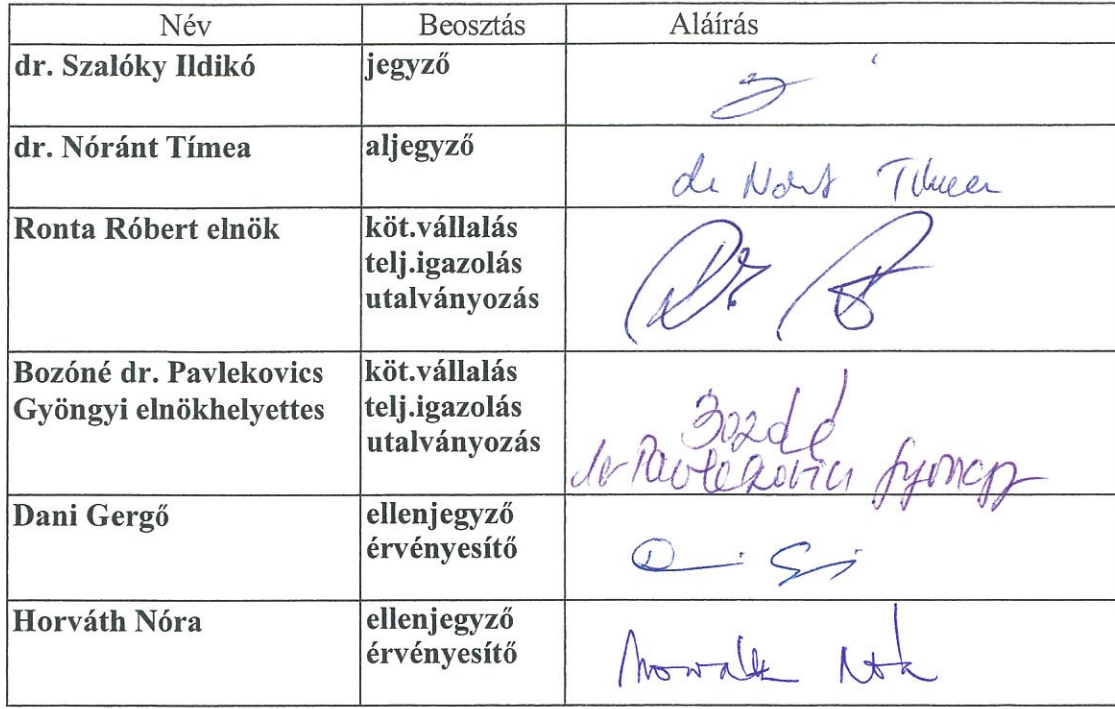 Név Beosztás Aláírás
dr. Szalóky Ildikó jegyző
dr. Nóránt Tímea aljegyző
dr Tímea
Ronta Róbert elnök köt.vállalás
telj.igazolás
utalványozás
Bozóné dr. Pavlekovics köt.vállalás
Gyöngyi elnökhelyettes telj.igazolás
utalványozás
Bozóné
dr Pavlekovics Gyöngyi
Dani Gergő ellenjegyző
érvényesítő
Horváth Nóra ellenjegyző
érvényesítő
Horváth Nóra